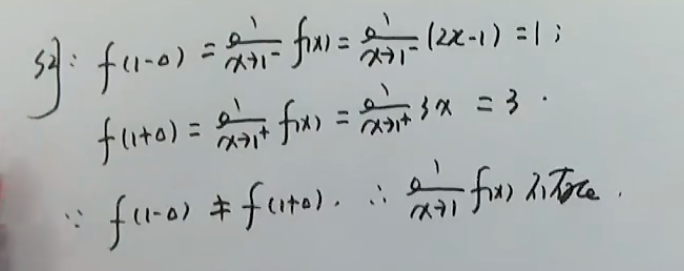 解: f(1-0) = lim_{x→1⁻} f(x) = lim_{x→1⁻} (2x-1) = 1;
f(1+0) = lim_{x→1⁺} f(x) = lim_{x→1⁺} 3x = 3.
∵ f(1-0) ≠ f(1+0). ∴ lim_{x→1} f(x) 不存在.